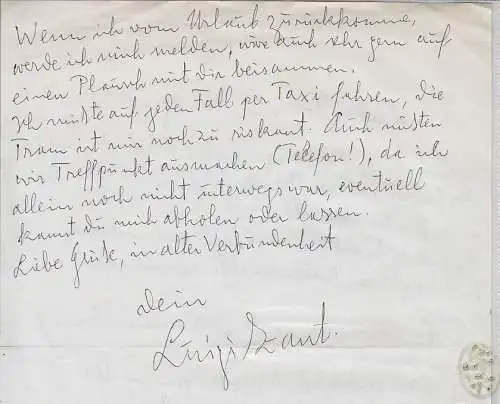 Wenn ich vom Urlaub zurückkomme,
werde ich mich melden, wäre auch sehr gern auf
einen Plausch mit dir beisammen.
Ich müßte auf jeden Fall per Taxi fahren, die
Tram ist mir noch zu riskant. Auch müßten
wir Treffpunkt ausmachen (Telefon!), da ich
allein noch nicht unterwegs war, eventuell
kannst du mich abholen oder lassen.
Liebe Grüße, in alter Verbundenheit
dein
Luigi